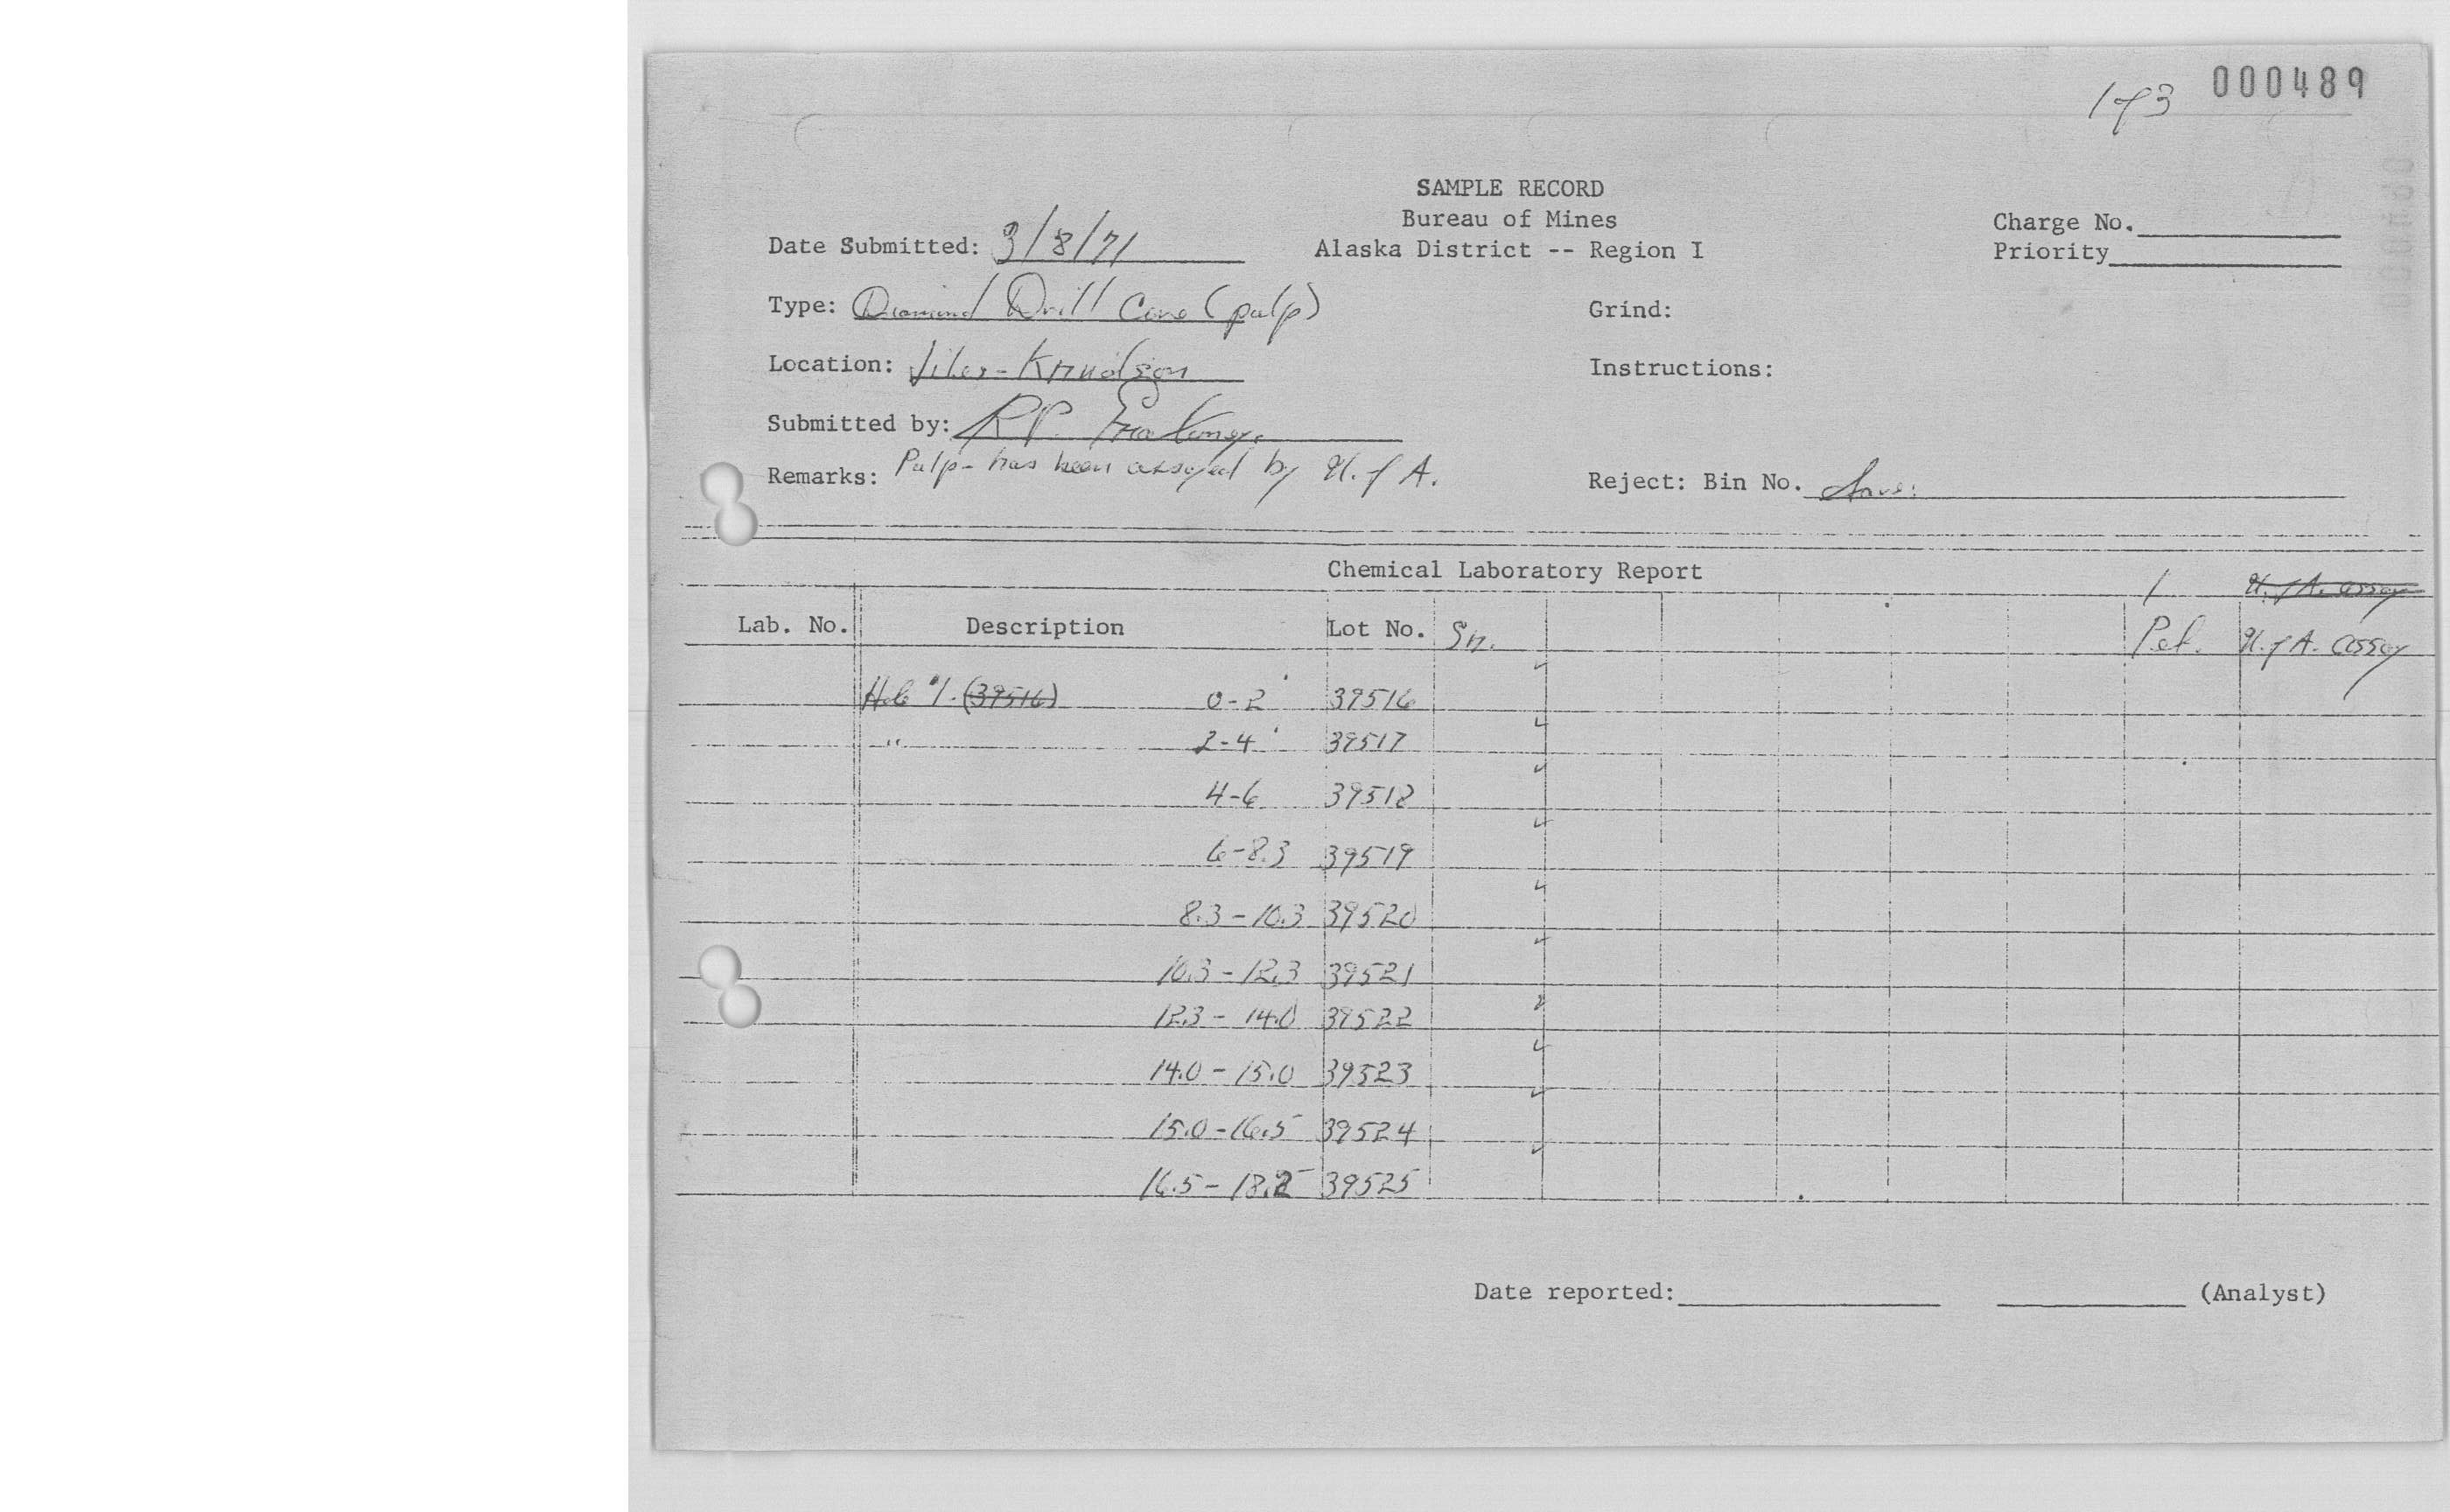 1 of 3 000489
SAMPLE RECORD
Bureau of Mines
Alaska District -- Region I
Charge No.
Priority
Date Submitted: 3/8/71
Type: Diamond Drill Core (pulp)
Grind:
Location: Knudson
Instructions:
Submitted by: R.P.
Remarks: Pulp - has been assayed by U. of A.
Reject: Bin No. Save.
Chemical Laboratory Report
U. of A. assay
Lab. No. Description Lot No. Sn. Pet. U. of A. assay
Hole #1. (39516) 0-2' 39516 ✓
" 2-4' 39517 ✓
4-6 39518 ✓
6-8.3 39519 ✓
8.3-10.3 39520 ✓
10.3-12.3 39521 ✓
12.3-14.0 39522 ✓
14.0-15.0 39523 ✓
15.0-16.5 39524 ✓
16.5-18.2 39525 ✓
Date reported: (Analyst)